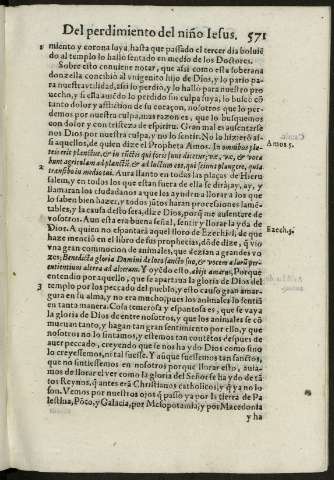 Del perdimiento del niño Iesus. 571
1 miento y corona suya, hasta que passado el tercer dia boluiẽ
do al templo lo hallo sentado en medio de los Doctores.
Sobre esto conuiene notar, que assi como esta soberana
donzella concibio al vnigenito hijo de Dios, y lo pario pa-
ra nuestra vtilidad, assi lo perdio, y lo hallo para nuestro pro
uecho, y si ella auiẽdo lo perdido sin culpa suya, lo busco cõ
tanto dolor y afflictiõ de su coraçon, nosotros que lo per-
demos por nuestra culpa, mas razon es, que lo busquemos
con dolor y con tristeza de espiritu. Gran mal es ausentarse
nos Dios por nuestra culpa, y no lo sentir. No lo hiziero assi
aquellos, de quien dize el Propheta Amos. In omnibus pla-
teis erit planctus, & in cũctis qui foris sunt dicetur, væ, væ, & voca
bunt agricolam ad planctũ, & ad luctum eos, qui sciunt plangere, quia
2 transibo in medio tui. Aura llanto en todas las plaças de Hieru
salem, y en todos los que estan fuera de ella se dirà ay, ay, y
llamaran los ciudadanos a que les ayuden a llorar a los que
lo saben bien hazer, y todos jutos haran processiones lamẽ-
tables, y la causa dello sera, dize Dios, porq̃ me ausentare de
vosotros. Aun esta era buena señal, sentir y llorar la yda de
Dios. A quien no espantarà aquel lloro de Ezechiel, de que
haze menciõ en el libro de sus prophecias, dõde dize, q̃ vio
vna gran commocion de animales, que dezian a grandes vo
zes, Benedicta gloria Domini de loco sancto suo, & vocem alarũ per-
cutientium altera ad alteram. Y oyẽdo esto, abij amarus, Porque
entendio por aquello, que se apartaua la gloria de Dios del
3 templo por los peccados del pueblo, y esto causo gran amar-
gura en su alma, y no era mucho, pues los animales lo sentiã
en tanta manera. Cosa temerosa y espantosa es, que se vaya
la gloria de Dios de entre nosotros, y que los animales se cõ
mueuan tanto, y hagan tan gran sentimiento por ello, y que
nosotros no lo sintamos, y estemos tan contẽtos despues de
auer peccado, creyendo que se nos ha ydo Dios como sino
lo creyessemos, ni tal fuesse. Y aũque fuessemos tan sanctos,
que no sintiessemos en nosotros porque llorar esto, auia-
mos de llorar el ver como la gloria del Señor se ha ydo de tã
tos Reynos, q̃ antes erã Christianos catholicos, y q̃ ya no lo
son. Vemos por nuestros ojos q̃ passo ya por la tierra de Pa
lestina, Põto, y Galacia, por Mesopotamia, y por Macedonia
y ha
Amos 5.
Ezech. 3.